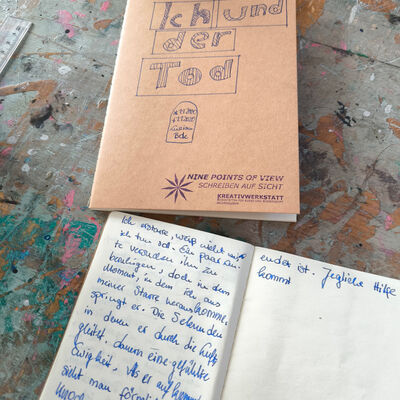 Ich und
der
Tod
NINE POINTS OF VIEW
SCHREIBEN AUF SICHT
KREATIVWERKSTATT
Ich erstarre, weiß nicht was
ich tun soll. Ein paar
versuchen ihn zu
beruhigen, doch in dem
Moment, in dem ich aus
meiner Starre herauskomme,
springt er. Die Sekunden
in denen er durch die Luft
gleitet, dauern eine gefühlte
Ewigkeit. Als er
sieht man
endet ist. Jegliche Hilfe
kommt